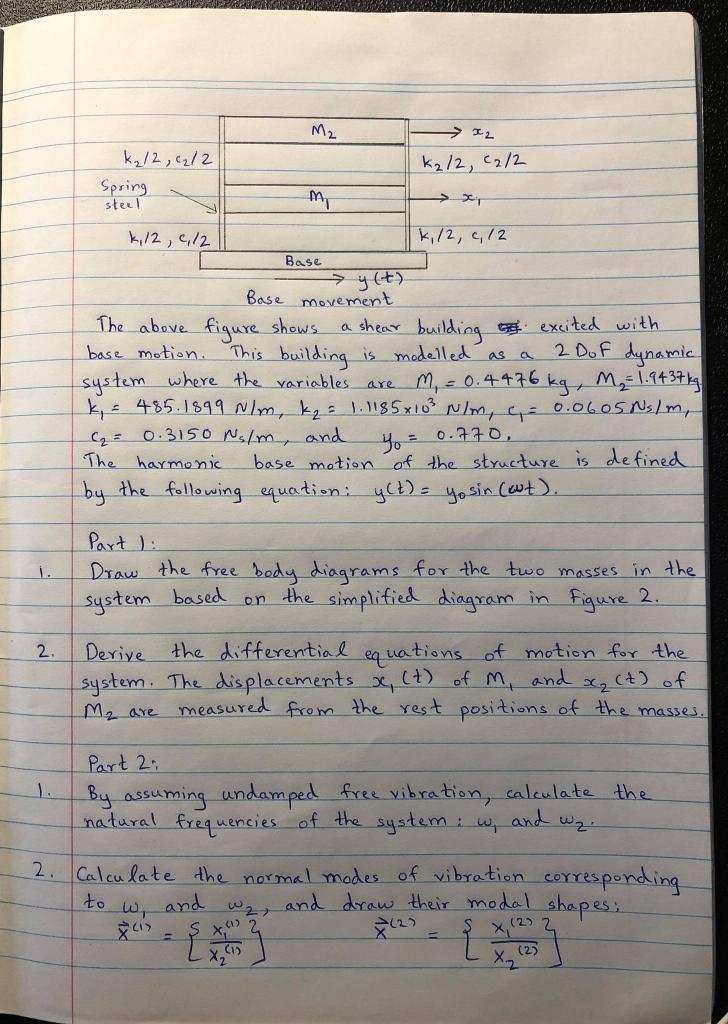 M2
→ x2
k2/2, c2/2
k2/2, c2/2
Spring
steel
M1
→ x1
k1/2, c1/2
k1/2, c1/2
Base
→ y(t)
Base movement
The above figure shows a shear building excited with
base motion. This building is modelled as a 2 DoF dynamic
system where the variables are M1 = 0.4476 kg, M2 = 1.9437 kg
k1 = 485.1899 N/m, k2 = 1.1185x10³ N/m, c1 = 0.0605 Ns/m,
c2 = 0.3150 Ns/m, and y0 = 0.770.
The harmonic base motion of the structure is defined
by the following equation: y(t) = y0 sin(ωt).
Part 1:
1. Draw the free body diagrams for the two masses in the
system based on the simplified diagram in Figure 2.
2. Derive the differential equations of motion for the
system. The displacements x1(t) of M1 and x2(t) of
M2 are measured from the rest positions of the masses.
Part 2:
1. By assuming undamped free vibration, calculate the
natural frequencies of the system: ω1 and ω2.
2. Calculate the normal modes of vibration corresponding
to ω1 and ω2, and draw their modal shapes:
X⃗(1) = {X1(1) / X2(1)} X⃗(2) = {X1(2) / X2(2)}